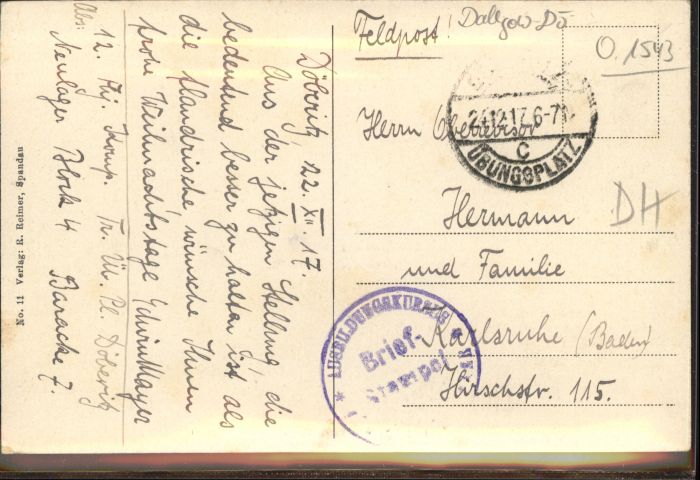 Feldpost!
Dallgow-Dö
O. 1543
24.12.17. 6-7
C
ÜBUNGSPLATZ
Herrn Oberrevisor
Hermann
und Familie
Karlsruhe (Baden)
Hirschstr. 115.
DH
AUSBILDUNGSKURSUS
Brief-
Stempel
Döberitz, 22. XII. 17.
Aus der jetzigen Stellung, die
bedeutend besser zu halten ist als
die flandrische wünsche Ihnen
frohe Weihnachtstage
Abs:
12. Komp. Tr. Üb. Pl. Döberitz
Neulager Block 4 Baracke 7.
No. 11 Verlag: R. Reimer, Spandau